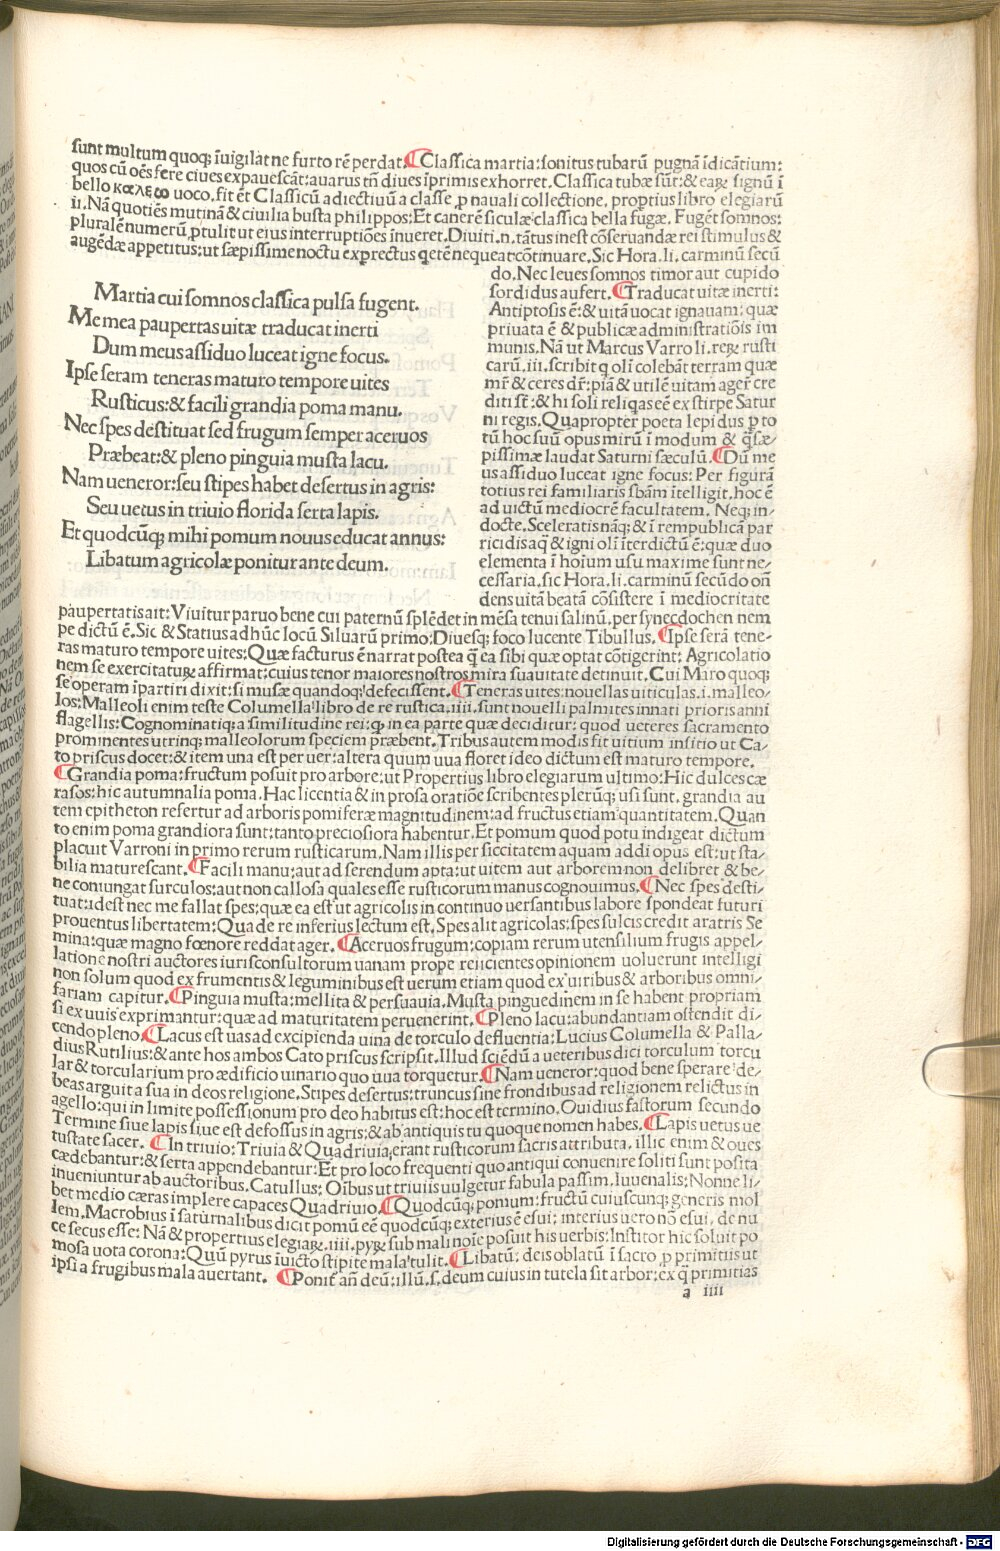 sunt multum quoq; īuigilat ne furto rē perdat. Classica martia: sonitus tubarū pugnā īdicātium:
quos cū oēs fere ciues expauescāt: auarus tñ diues īprimis exhorret. Classica tubæ sūt: & eaꝝ signū ī
bello καλεω uoco. fit ēt Classicū adiectiuū a classe .p nauali collectione, proptius libro elegiarū
ii. Nā quotiēs mutinā & ciuilia busta philippos: Et canerē siculæ classica bella fugæ. Fugēt somnos:
pluralē numerū .ptulit ut eius interruptiões īnueret. Diuiti .n. tātus inest cõseruandæ rei stimulus &
augēdæ appetitus: ut sæpissime noctu exprectus qetē nequeat cõtinuare. Sic Hora. li. carminū secū
do. Nec leues somnos timor aut cupido
sordidus aufert. Traducat uitæ inerti:
Antiptosis ē: & uitā uocat ignauam: quæ
priuata ē & publicæ administratiõis im
munis. Nā ut Marcus Varro li. reꝝ rusti
carū .iii. scribit q olī colebāt terram quæ
mr̄ & ceres dr̄: piā & utilē uitam ager cre
diti sr̄: & hi soli reliqas eē ex stirpe Satur
ni regis. Quapropter poeta lepidus .p to
tū hoc suū opus mirū ī modum & q̄sæ-
pissimæ laudat Saturni sæculū. Dū me
us assiduo luceat igne focus: Per figurā
totius rei familiaris sbām ītelligit. hoc ē
ad uictū mediocrē facultatem. Neq; in-
docte. Sceleratis nāq; & ī rempublicā par
ricidis aq̄ & igni olī īterdictū ē: quæ duo
elementa ī hoium usu maxime sunt ne-
cessaria. sic Hora. li. carminū secūdo oñ
dens uitā beatā cõsistere ī mediocritate
Martia cui somnos classica pulsa fugent.
Me mea paupertas uitæ traducat inerti
Dum meus assiduo luceat igne focus.
Ipse seram teneras maturo tempore uites
Rusticus: & facili grandia poma manu.
Nec spes destituat sed frugum semper aceruos
Præbeat: & pleno pinguia musta lacu.
Nam ueneror: seu stipes habet desertus in agris:
Seu uetus in triuio florida serta lapis.
Et quodcūq; mihi pomum nouus educat annus:
Libatum agricolæ ponitur ante deum.
paupertatis ait: Viuitur paruo bene cui paternū splēdet in mēsa tenui salinū. per synecdochen nem
pe dictū ē. Sic & Statius ad hūc locū Siluarū primo: Diuesq; foco lucente Tibullus. Ipse serā tene-
ras maturo tempore uites: Quæ facturus ē narrat postea q̄ ea sibi quæ optat cõtigerint: Agricolatio
nem se exercitatuꝝ affirmat: cuius tenor maiores nostros mira suauitate detinuit. Cui Maro quoq;
se operam īpartiri dixit: si musæ quandoq; defecissent. Teneras uites: nouellas uiticulas .i. malleo-
los: Malleoli enim teste Columella libro de re rustica .iiii. sunt nouelli palmites innati prioris anni
flagellis: Cognominatiq; a similitudine rei: q; in ea parte quæ deciditur: quod ueteres sacramento
prominentes utrinq; malleolorum speciem præbent. Tribus autem modis fit uitium insitio ut Ca-
to priscus docet: & item una est per uer: altera quum uua floret ideo dictum est maturo tempore.
Grandia poma: fructum posuit pro arbore: ut Propertius libro elegiarum ultimo: Hic dulces cæ
rasos: hic autumnalia poma. Hac licentia & in prosa oratiōe scribentes plerūq; usi sunt. grandia au
tem epitheton refertur ad arboris pomiferæ magnitudinem: ad fructus etiam quantitatem. Quan
to enim poma grandiora sunt: tanto preciosiora habentur. Et pomum quod potu indigeat dictum
placuit Varroni in primo rerum rusticarum. Nam illis per siccitatem aquam addi opus est: ut sta-
bilia maturescant. Facili manu: aut ad serendum apta: ut uitem aut arborem non delibret & be-
ne coniungat surculos: aut non callosa quales esse rusticorum manus cognouimus. Nec spes desti-
tuat: idest nec me fallat spes: quæ ea est ut agricolis in continuo uersantibus labore spondeat futuri
prouentus libertatem: Qua de re inferius lectum est. Spes alit agricolas: spes sulcis credit aratris Se
mina: quæ magno fœnore reddat ager. Aceruos frugum: copiam rerum utensilium frugis appel-
latione nostri auctores iurisconsultorum uanam prope reiicientes opinionem uoluerunt intelligi
non solum quod ex frumentis & leguminibus est uerum etiam quod ex uiribus & arboribus omni-
fariam capitur. Pinguia musta: mellita & persuauia. Musta pinguedinem in se habent propriam
si ex uuis exprimantur: quæ ad maturitatem peruenerint. Pleno lacu: abundantiam ostendit di-
cendo pleno. Lacus est uas ad excipienda uina de torculo defluentia: Lucius Columella & Palla-
dius Rutilius: & ante hos ambos Cato priscus scripsit. Illud sciēdū a ueteribus dici torculum torcu
lar & torcularium pro ædificio uinario quo uua torquetur. Nam ueneror: quod bene sperare de-
beas arguit a sua in deos religione. Stipes desertus: truncus sine frondibus ad religionem relictus in
agello: qui in limite possessionum pro deo habitus est: hoc est termino. Ouidius fastorum secundo
Termine siue lapis siue est defossus in agris: & ab antiquis tu quoque nomen habes. Lapis uetus ue
tustate sacer. In triuio: Triuia & Quadriuia, erant rusticorum sacris attributa. illic enim & oues
cædebantur: & serta appendebantur: Et pro loco frequenti quo antiqui conuenire soliti sunt posita
inueniuntur ab auctoribus. Catullus: Oībus ut triuiis uulgetur fabula passim. Iuuenalis: Nonne li-
bet medio cæras implere capaces Quadriuio. Quodcūq; pomum: fructū cuiuscunq; generis mol
lem. Macrobius ī saturnalibus dicit pomū eē quodcūq; exterius ē esui: interius uero nō esui. de nu
ce secus esse: Nā & propertius elegiaꝝ .iiii. pyrꝝ sub mali noīe posuit his uerbis: Institor hic soluit po
mosa uota corona: Quū pyrus īuicto stipite mala tulit. Libatū: deis oblatū ī sacro .p primitiis ut
ipsi a frugibus mala auertant. Ponit añ deū: illū .s. deum cuius in tutela sit arbor: ex q̄ primitias
a iiii
Digitalisierung gefördert durch die Deutsche Forschungsgemeinschaft - DFG